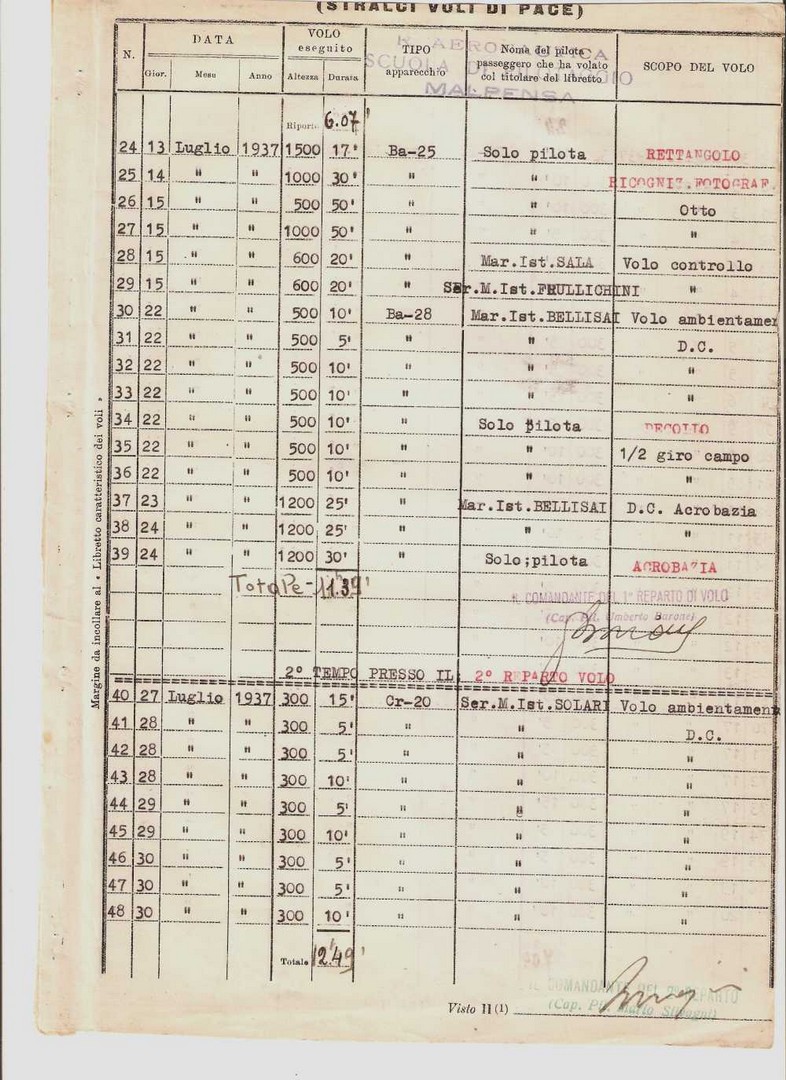 (STRALCI VOLI DI PACE)
N. DATA VOLO eseguito TIPO apparecchio Nome del pilota passeggero che ha volato col titolare del libretto SCOPO DEL VOLO
Gior. Mese Anno Altezza Durata
R. AERONAUTICA
SCUOLA DI PILOTAGGIO
MALPENSA
Riporto 6.07'
24 13 Luglio 1937 1500 17' Ba-25 Solo pilota RETTANGOLO
25 14 " " 1000 30' " " RICOGNIZ.FOTOGRAF.
26 15 " " 500 50' " " Otto
27 15 " " 1000 50' " " "
28 15 " " 600 20' " Mar.Ist.SALA Volo controllo
29 15 " " 600 20' " Ser.M.Ist.FRULLICHINI "
30 22 " " 500 10' Ba-28 Mar.Ist.BELLISAI Volo ambientamen
31 22 " " 500 5' " " D.C.
32 22 " " 500 10' " " "
33 22 " " 500 10' " " "
34 22 " " 500 10' " Solo pilota DECOLLO
35 22 " " 500 10' " " 1/2 giro campo
36 22 " " 500 10' " " "
37 23 " " 1200 25' " Mar.Ist.BELLISAI D.C. Acrobazia
38 24 " " 1200 25' " " "
39 24 " " 1200 30' " Solo;pilota ACROBAZIA
Totale - 11.39'
IL COMANDANTE DEL 1° REPARTO DI VOLO
(Cap. Pil. Umberto Barone)
2° TEMPO PRESSO IL: 2° REPARTO VOLO
40 27 Luglio 1937 300 15' Cr-20 Ser.M.Ist.SOLARI Volo ambientament
41 28 " " 300 5' " " D.C.
42 28 " " 300 5' " " "
43 28 " " 300 10' " " "
44 29 " " 300 5' " " "
45 29 " " 300 10' " " "
46 30 " " 300 5' " " "
47 30 " " 300 5' " " "
48 30 " " 300 10' " " "
Totale 12.49'
IL COMANDANTE DEL 2° REPARTO
(Cap. Pil. Mario
Visto Il (1)
Margine da incollare al « Libretto caratteristico dei voli »